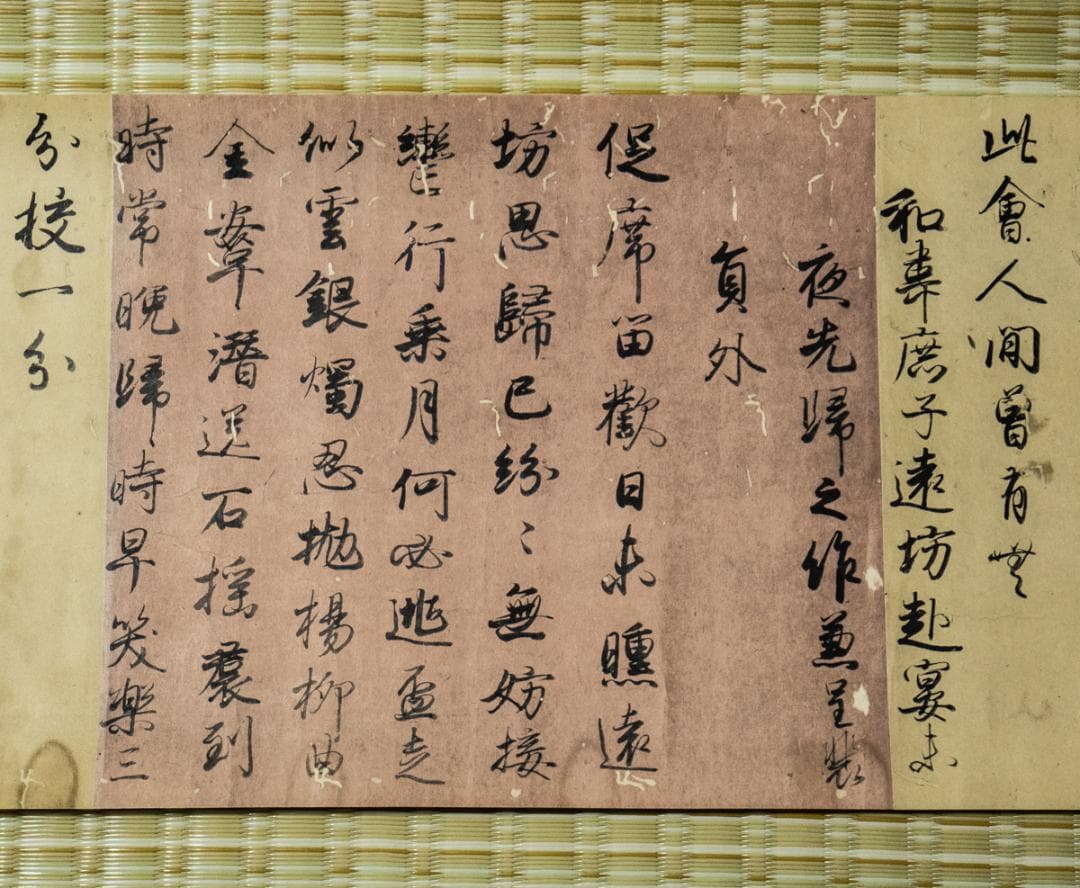 此會人間曾有無
和韋庶子遠坊赴宴未
夜先歸之作兼呈裴
員外
促席留歡日未曛遠
坊思歸已紛〻無妨按
轡行乗月何必逃盃走
似雲銀燭忍拋楊柳曲
金鞌潛送石榴裠到
時常晩歸時早笑樂三
分挍一分